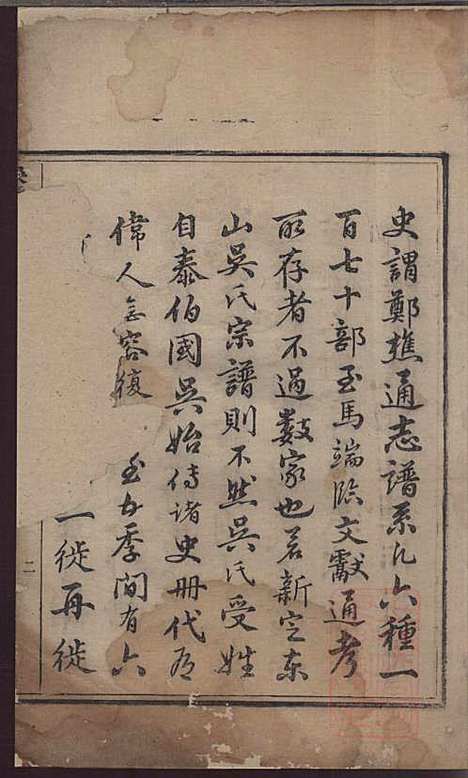 史謂鄭樵通志譜系凡六種一
百七十部至馬端臨文獻通考
所存者不過數家也若新定東
山吳氏宗譜則不然吳氏受姓
自泰伯國吳始傳諸史冊代為
偉人無容復
至五季間有六
一徙再徙
二